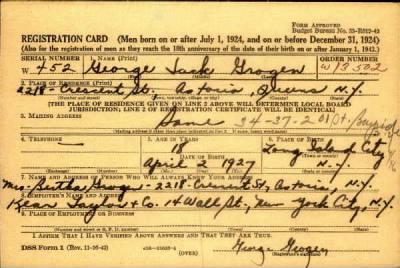 FORM APPROVED
Budget Bureau No. 33-R012-43
REGISTRATION CARD (Men born on or after July 1, 1924, and on or before December 31, 1924)
(Also for the registration of men as they reach the 18th anniversary of the date of their birth on or after January 1, 1943.)
SERIAL NUMBER 1. NAME (Print) ORDER NUMBER
W 452 George Jack Grogen W13522
2. PLACE OF RESIDENCE (Print)
2218- Crescent St., Astoria, Queens N.Y.
[THE PLACE OF RESIDENCE GIVEN ON LINE 2 ABOVE WILL DETERMINE LOCAL BOARD
JURISDICTION; LINE 2 OF REGISTRATION CERTIFICATE WILL BE IDENTICAL]
3. MAILING ADDRESS
Same 34-37-201 St., Bayside
4. TELEPHONE 5. AGE IN YEARS 6. PLACE OF BIRTH
18 Long Island City
DATE OF BIRTH
April 2 1927 N.Y.
7. NAME AND ADDRESS OF PERSON WHO WILL ALWAYS KNOW YOUR ADDRESS
Mrs. Bertha Grogen - 2218- Crescent St., Astoria, N.Y.
8. EMPLOYER'S NAME AND ADDRESS
& Co. 14 Wall St., New York City, N.Y.
9. PLACE OF EMPLOYMENT OR BUSINESS
I AFFIRM THAT I HAVE VERIFIED ABOVE ANSWERS AND THAT THEY ARE TRUE.
DSS Form 1 George Grogen